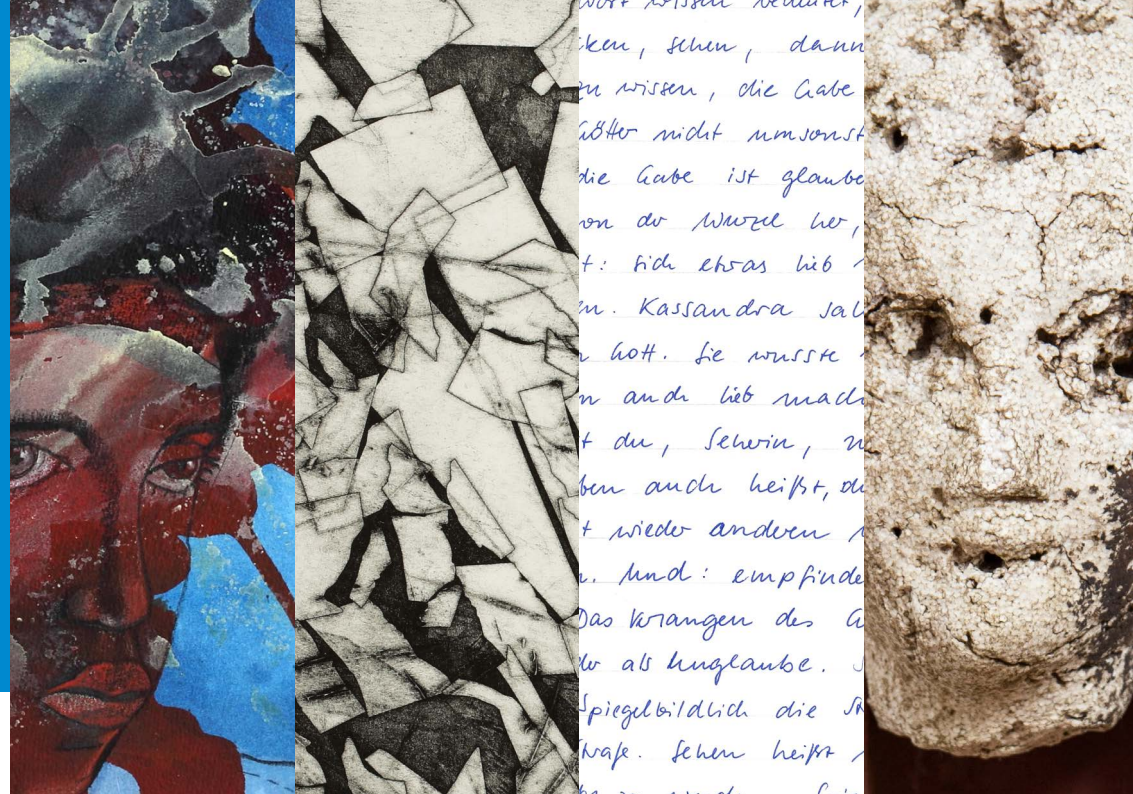 wort wissen bedeutet,
ken, sehen, dann
zu wissen, die Gabe
Götter nicht umsonst
die Gabe ist glaube
von der Wurzel her,
t: sich etwas lieb
n. Kassandra sah
Gott. Sie wusste
n auch lieb mach
t du, Seherin,
ben auch heißt, d
t wieder anderen
n. Und: empfinde
Das Verlangen des G
der als Unglaube.
Spiegelbildlich die St
trafe. Sehen heißt